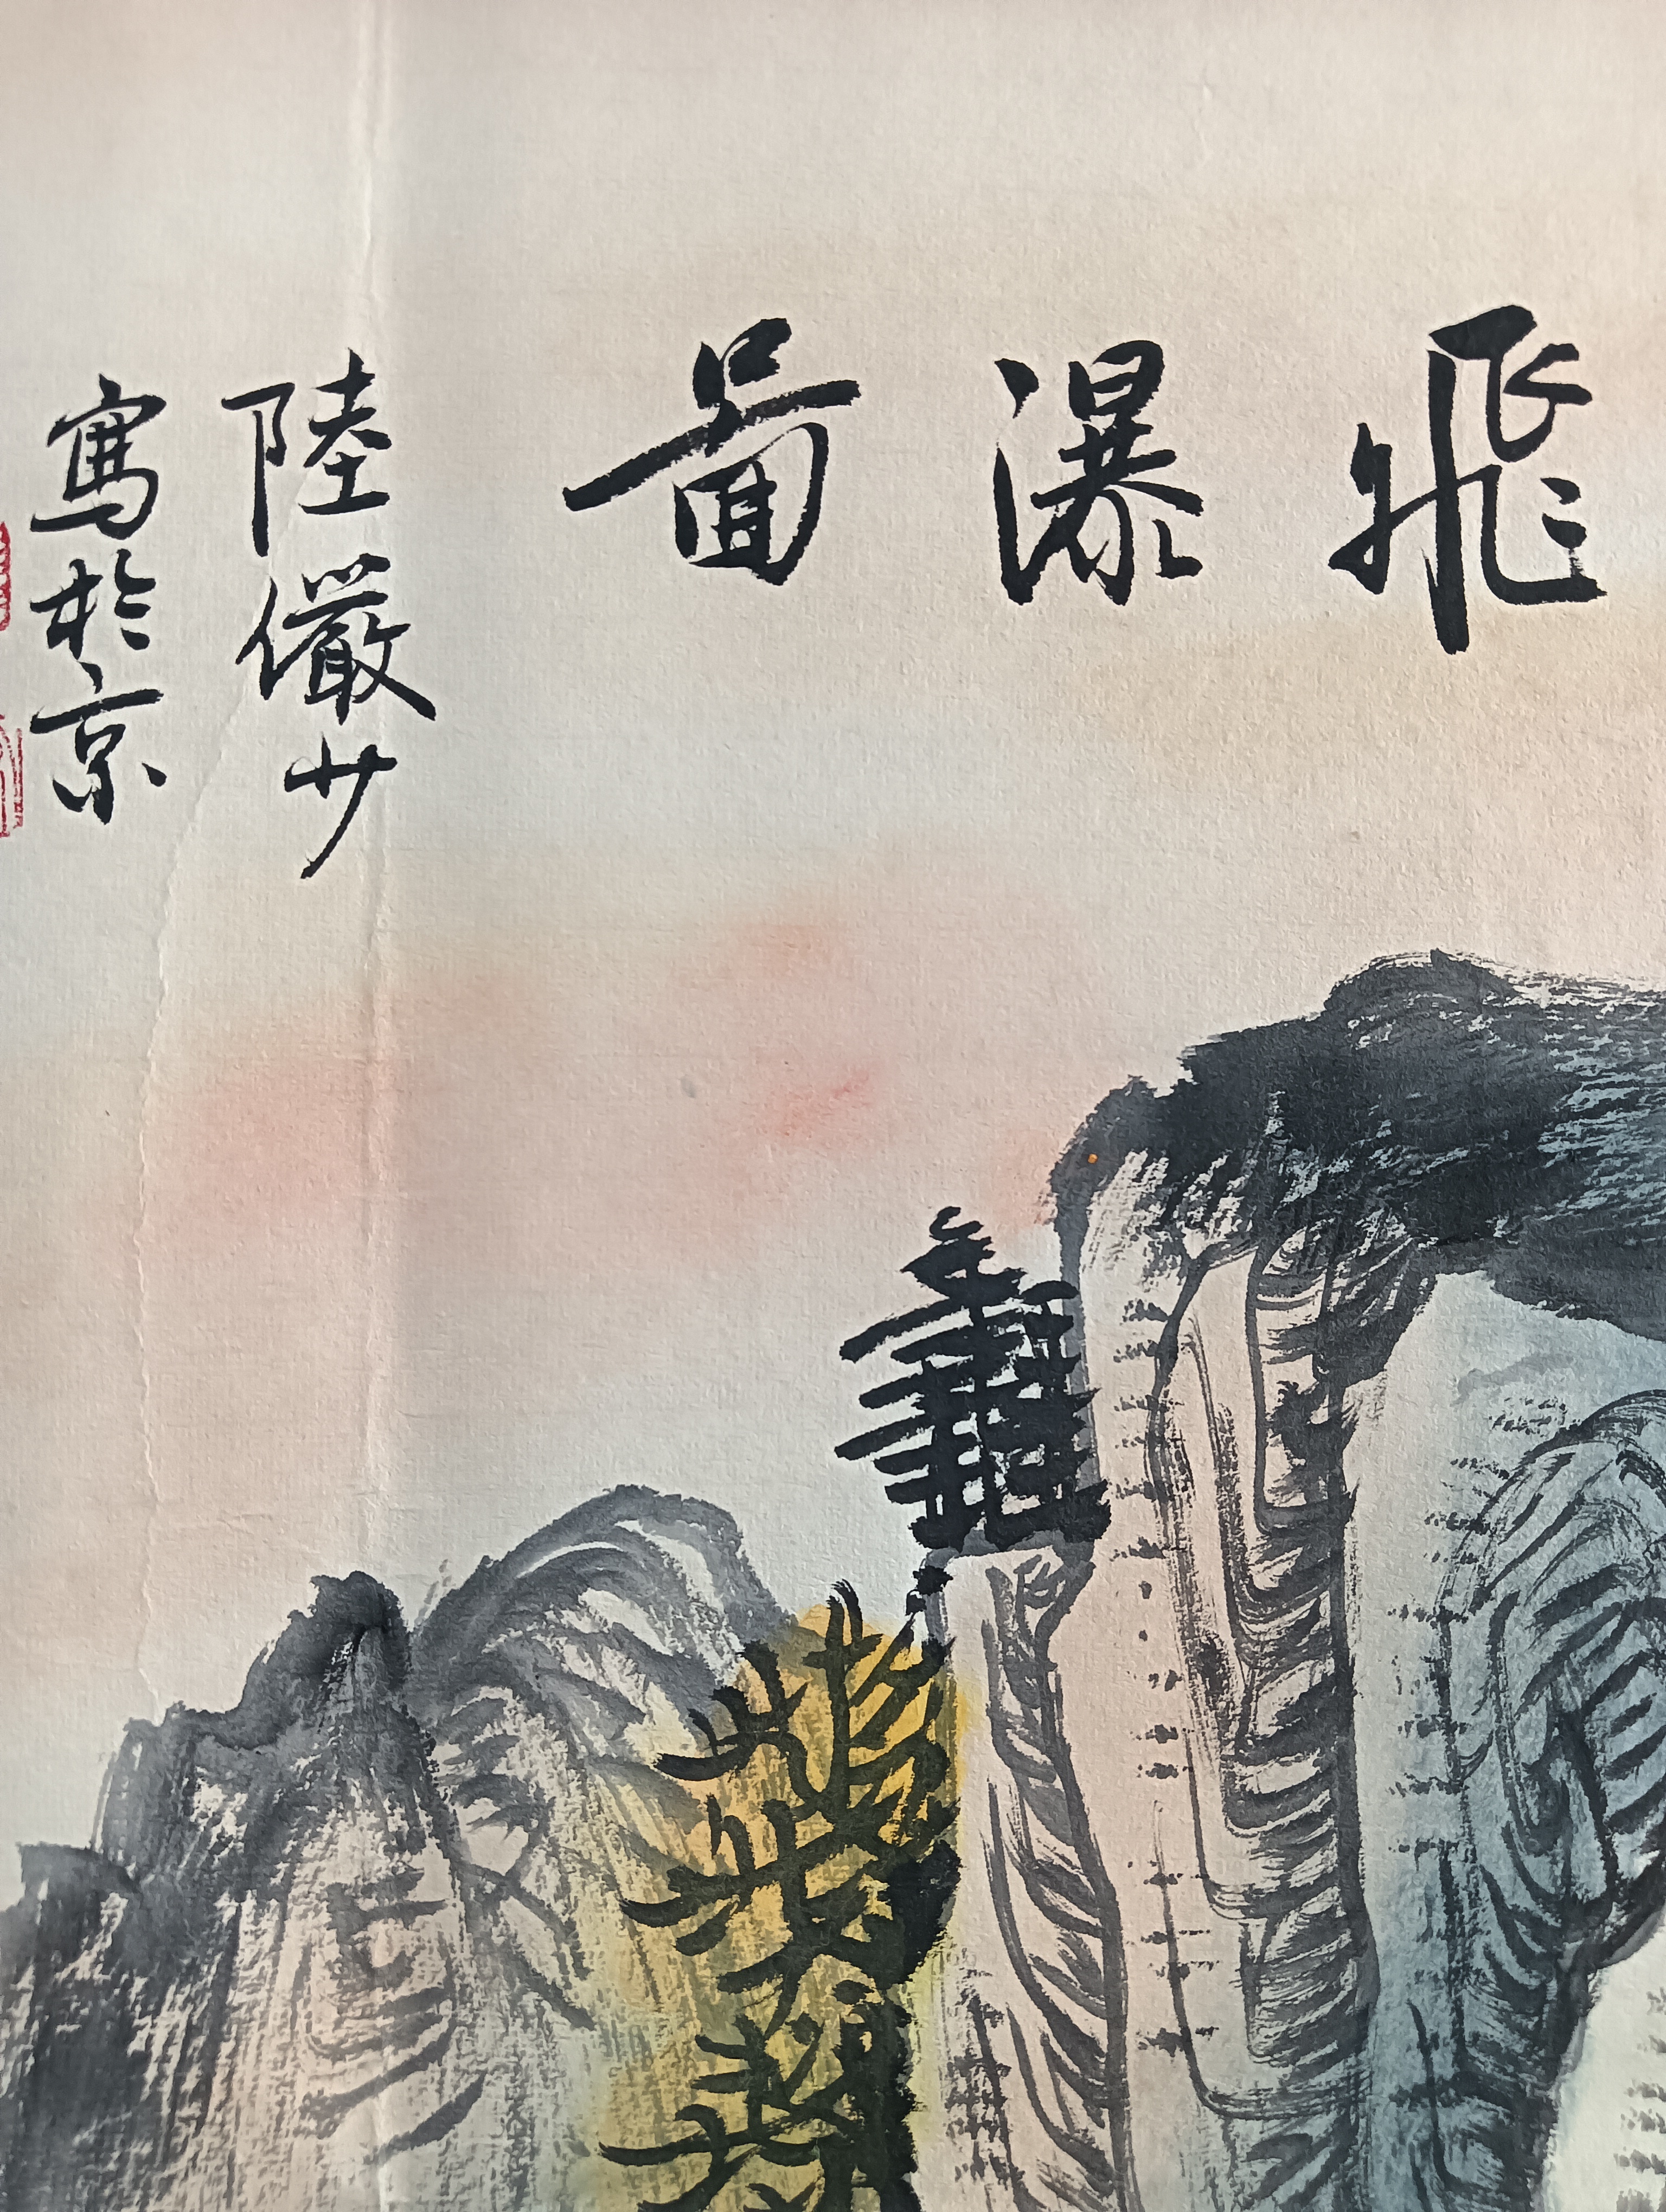 飛瀑啚
陸儼少
寫於京